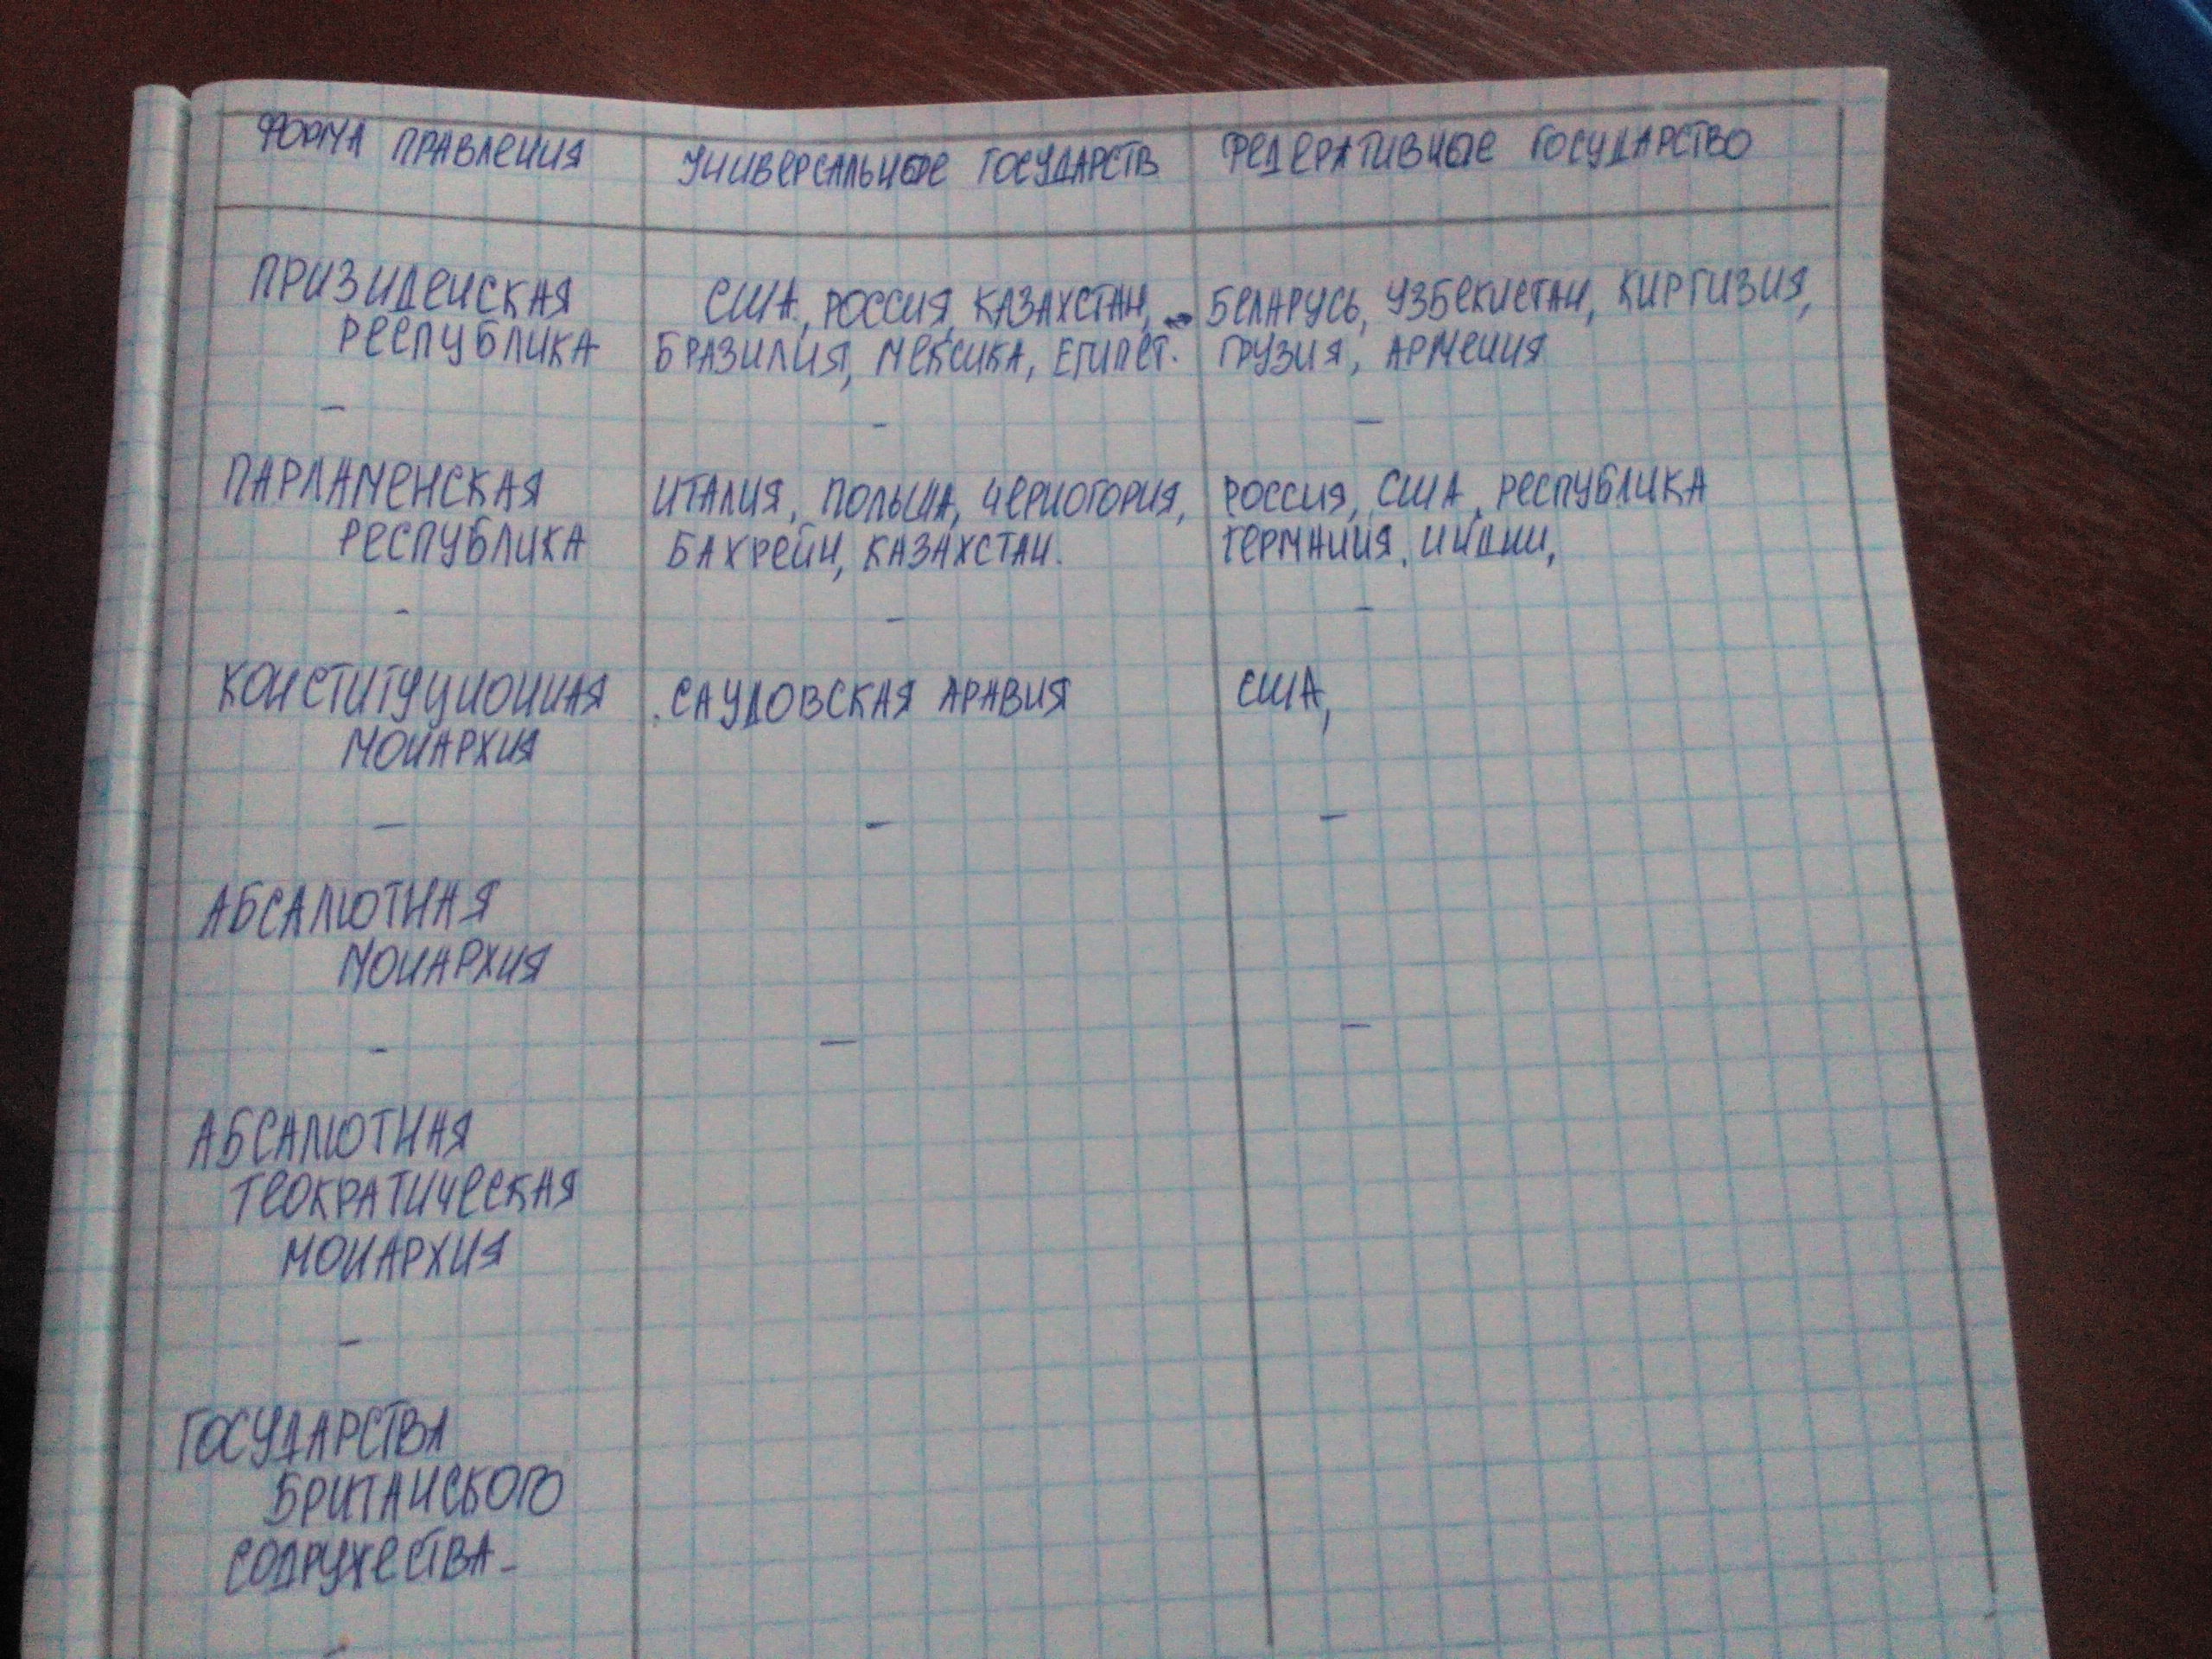 ФОРМА ПРАВЛЕНИЯ
УНИВЕРСАЛЬНЫЕ ГОСУДАРСТВ
ФЕДЕРАТИВНЫЕ ГОСУДАРСТВО
ПРИЗИДЕНСКАЯ
РЕСПУБЛИКА
–
США, РОССИЯ, КАЗАХСТАН,
БРАЗИЛИЯ, МЕКСИКА, ЕГИПЕТ.
–
БЕЛАРУСЬ, УЗБЕКИСТАН, КИРГИЗИЯ,
ГРУЗИЯ, АРМЕНИЯ
–
ПАРЛАМЕНСКАЯ
РЕСПУБЛИКА
–
ИТАЛИЯ, ПОЛЬША, ЧЕРНОГОРИЯ,
БАХРЕЙН, КАЗАХСТАН.
–
РОССИЯ, США, РЕСПУБЛИКА
ГЕРМАНИЯ,
–
КОНСТИТУЦИОННАЯ
МОНАРХИЯ
–
САУДОВСКАЯ АРАВИЯ
–
США,
–
АБСАЛЮТНАЯ
МОНАРХИЯ
–
–
–
АБСАЛЮТНАЯ
ТЕОКРАТИЧЕСКАЯ
МОНАРХИЯ
–
ГОСУДАРСТВА
БРИТАНСКОГО
СОДРУЖЕСТВА –